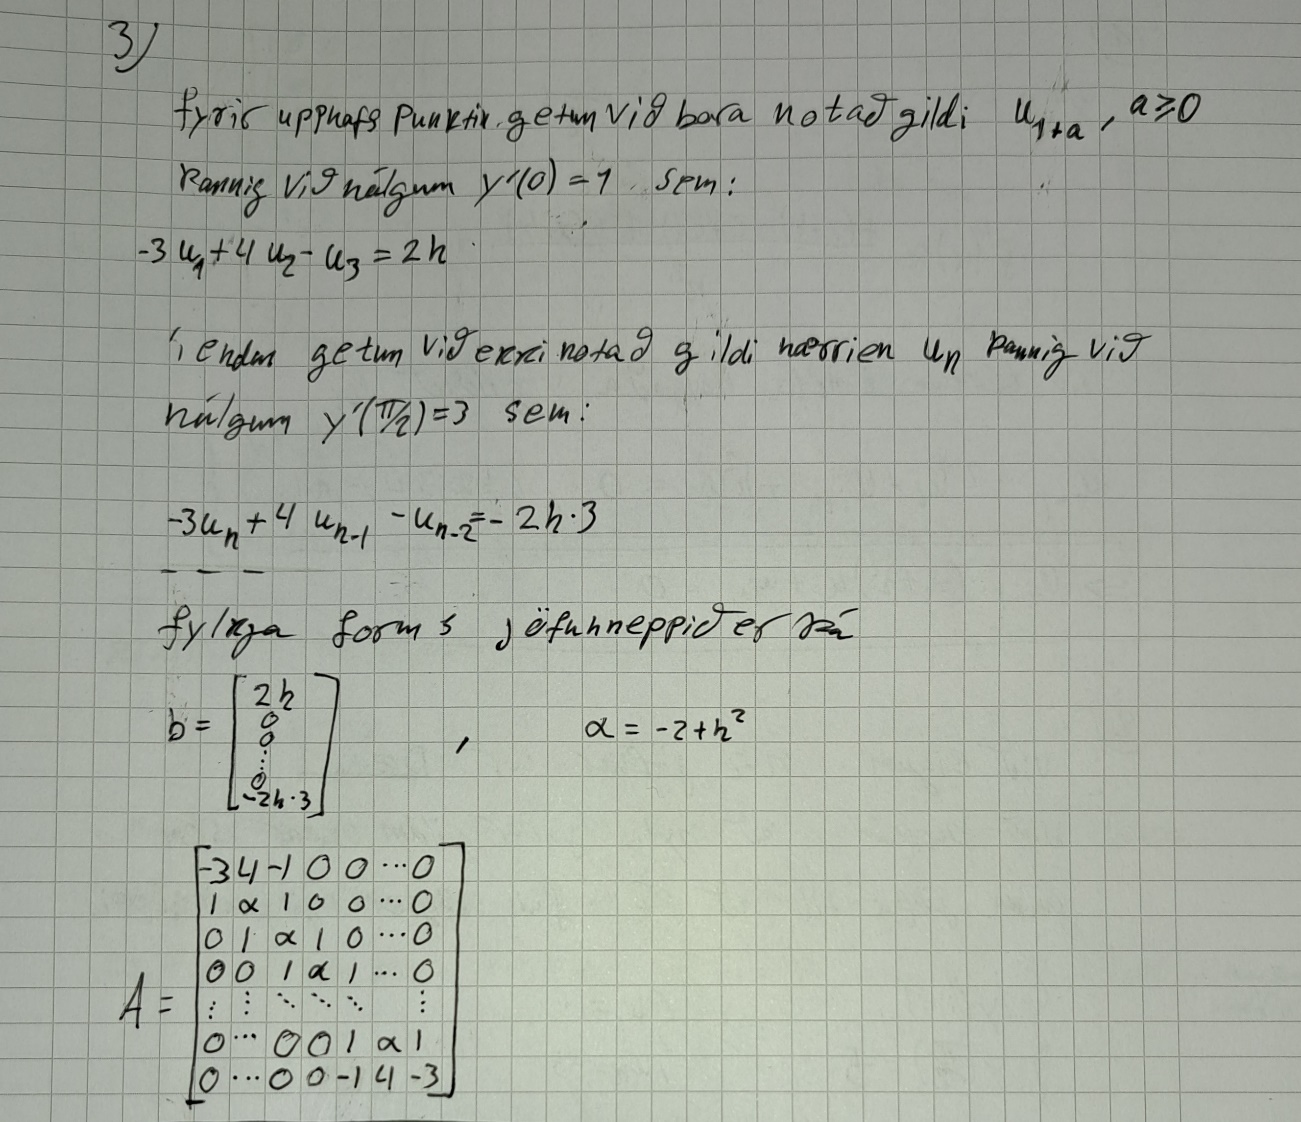 3)
fyrir upphafs punktin getum við bara notað gildi u_{1+a}, a≥0
þannig við nálgum y'(0) = 1 sem:
-3u_1 + 4u_2 - u_3 = 2h
í endan getum við ekki notað gildi hærri en u_n þannig við
nálgum y'(π/2) = 3 sem:
-3u_n + 4u_{n-1} - u_{n-2} = -2h·3
- - -
fylkja forms jöfnuhneppið er þá
b = [2h 0 0 ⋮ 0 -2h·3] , α = -2+h²
A =
-3 4 -1 0 0 ⋯ 0
1 α 1 0 0 ⋯ 0
0 1 α 1 0 ⋯ 0
0 0 1 α 1 ⋯ 0
⋮ ⋮ ⋱ ⋱ ⋱ ⋮
0 ⋯ 0 0 1 α 1
0 ⋯ 0 0 -1 4 -3